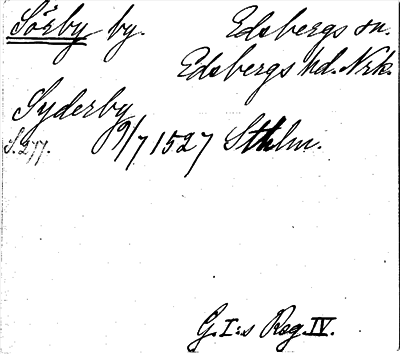 Sörby by. Edsbergs sn.
Edsbergs hd. Nrk.
Syderby
S. 277. 9/7 1527 Sthlm.
G. I:s Reg. IV.